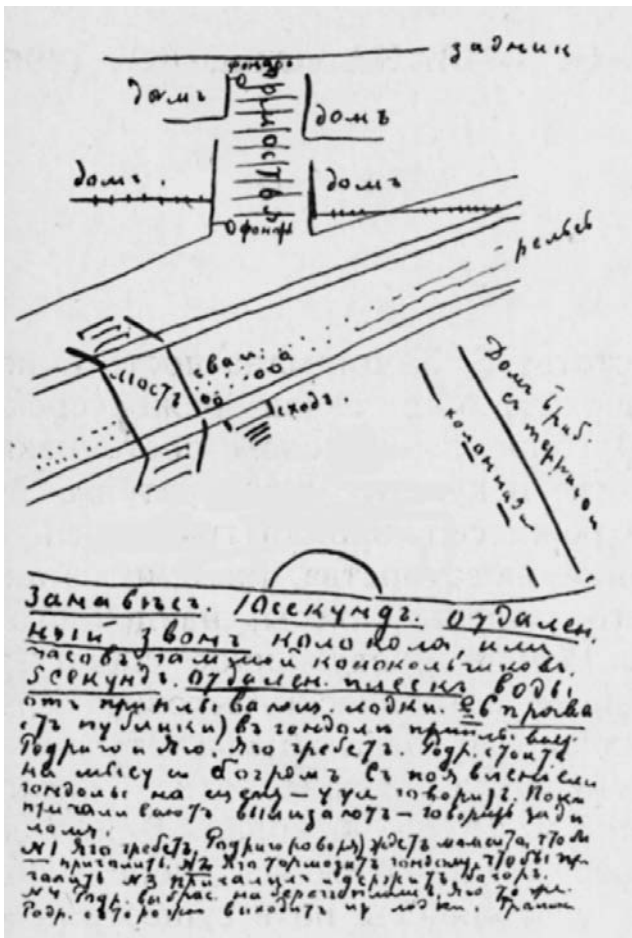 задник
фонарь
домъ
мостъ
домъ
домъ.
домъ
фонарь
рельсъ
сваи
мостъ
сходъ.
Домъ Браб.
съ террасой
колоннада
Занавѣсъ. 10 секундъ. отдален.
ный звонъ колокола, или
часовъ башней колокольчиковъ.
5 секундъ. отдален. плескъ воды
отъ приплывающ. лодки.
отъ публики) въ гондолѣ приплываю
Родриго и Яго. Яго гребетъ. Родр. стоитъ
на мысу съ богромъ. Съ появленіемъ
гондолы на сцену — уже говорятъ. Пока
причаливаютъ вылизаютъ — говорятъ
№1 Яго гребетъ, Родриго ждетъ момента, чтобы
причалить. №2 Яго тормозитъ гондолу, чтобы при
чалить №3 причалилъ и держитъ богоръ.
№4 Родр. выбрас. на Яго
Родр. выходитъ изъ лодки.